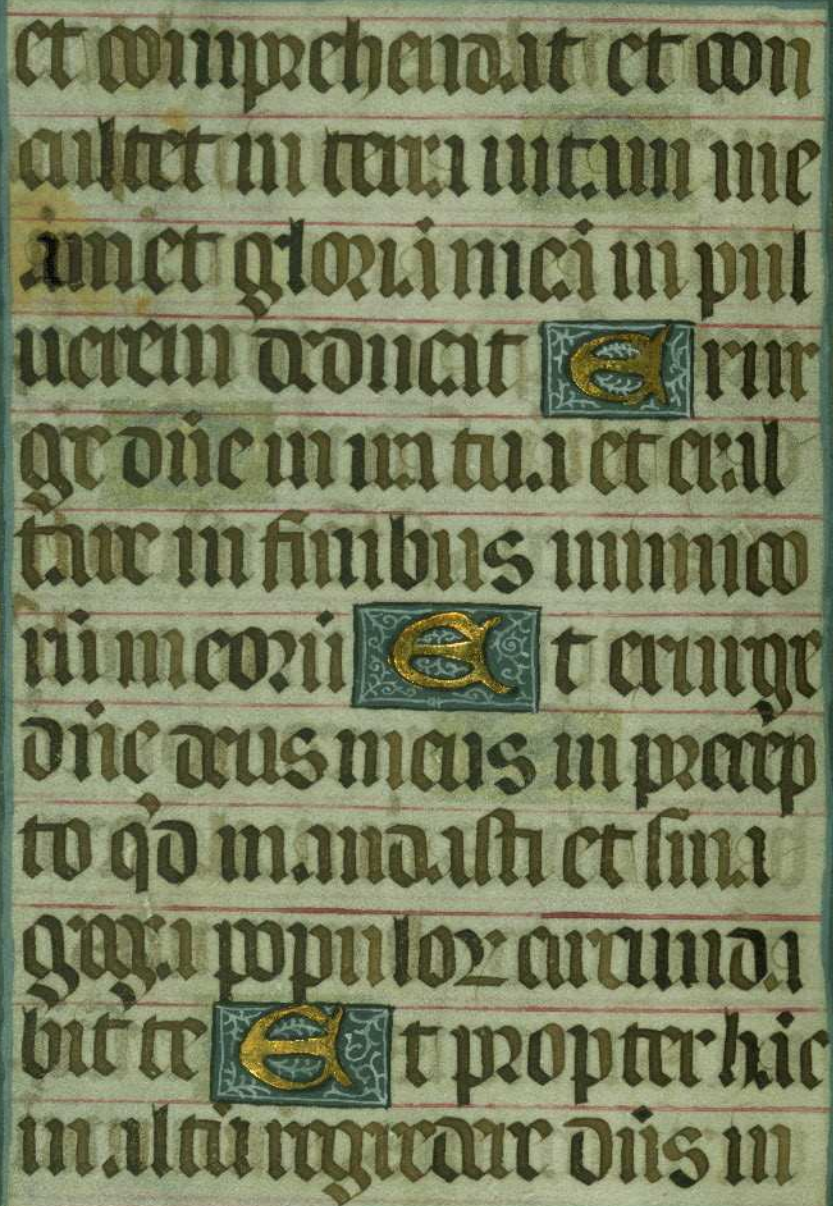 et comprehendat et con
culcet in terra uitam me
am et gloriā meā in pul
uerem deducat Exur
ge dn̄e in ira tua et exal
tare in finibus inimico
rū meorū Et exurge
dn̄e deus meus in precep
to qd̓ mandasti et sina
goga populoꝝ circumda
bit te Et propter hāc
in altū regredere dn̄s in